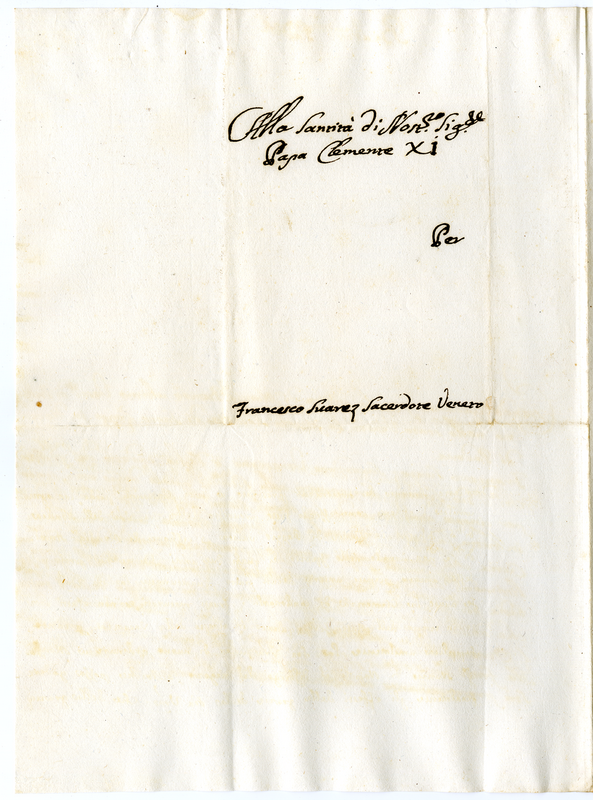 Alla Santità di Nost.ro Sig.re
Papa Clemente XI
Per
Francesco Suarez Sacerdote Veneto